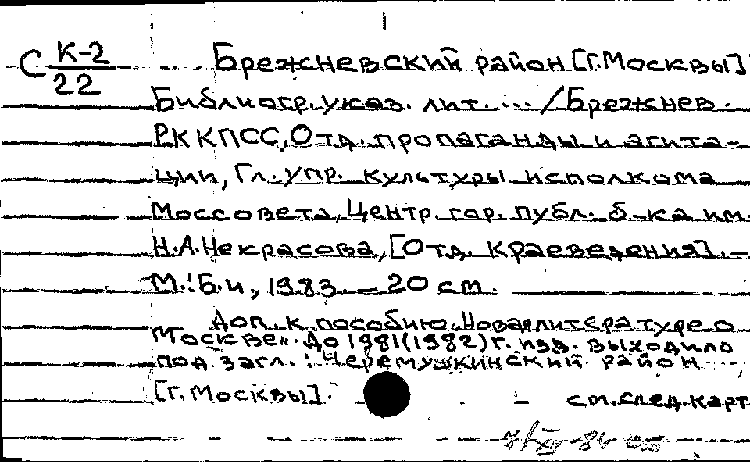 С К-2/22 Брежневский район [г.Москвы]
Библиогр. указ. лит. ... /Брежнев.
РК КПСС, Отд. пропаганды и агита-
ции, Гл. упр. культуры исполкома
Моссовета, Центр. гор. публ. б-ка им.
Н.А.Некрасова, [Отд. краеведения]. —
М.: Б.и, 1983. — 20 см.
Доп. к пособию „Новая литература о
Москве". До 1981(1982)г. изд. выходило
под загл.: Черемушкинский район
[г. Москвы].
см.след.карт